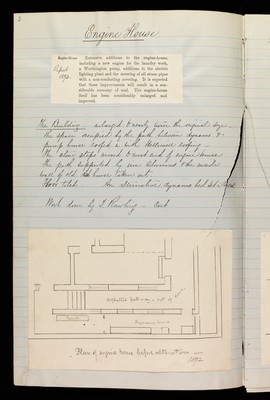 Engine House
Engine-House. Extensive additions to the engine-house,
including a new engine for the laundry work,
a Worthington pump, additions to the electric
lighting plant and the covering of all steam pipes
with a non-conducting covering. It is expected
that these improvements will result in a con-
siderable economy of coal. The engine-house
itself has been considerably enlarged and
improved.
Report
1892.
The Building enlarged to nearly twice the original size.
The space occupied by the path between dynamo &
pump house roofed in with
The stone steps moved to west end of engine house
The path supported by iron columns & the inside
wall of old house taken out.
Floor tiled. New dynamo bed
Work done by
Asphalted pathway
Dynamo house
Plan of engine house before alteration
1892